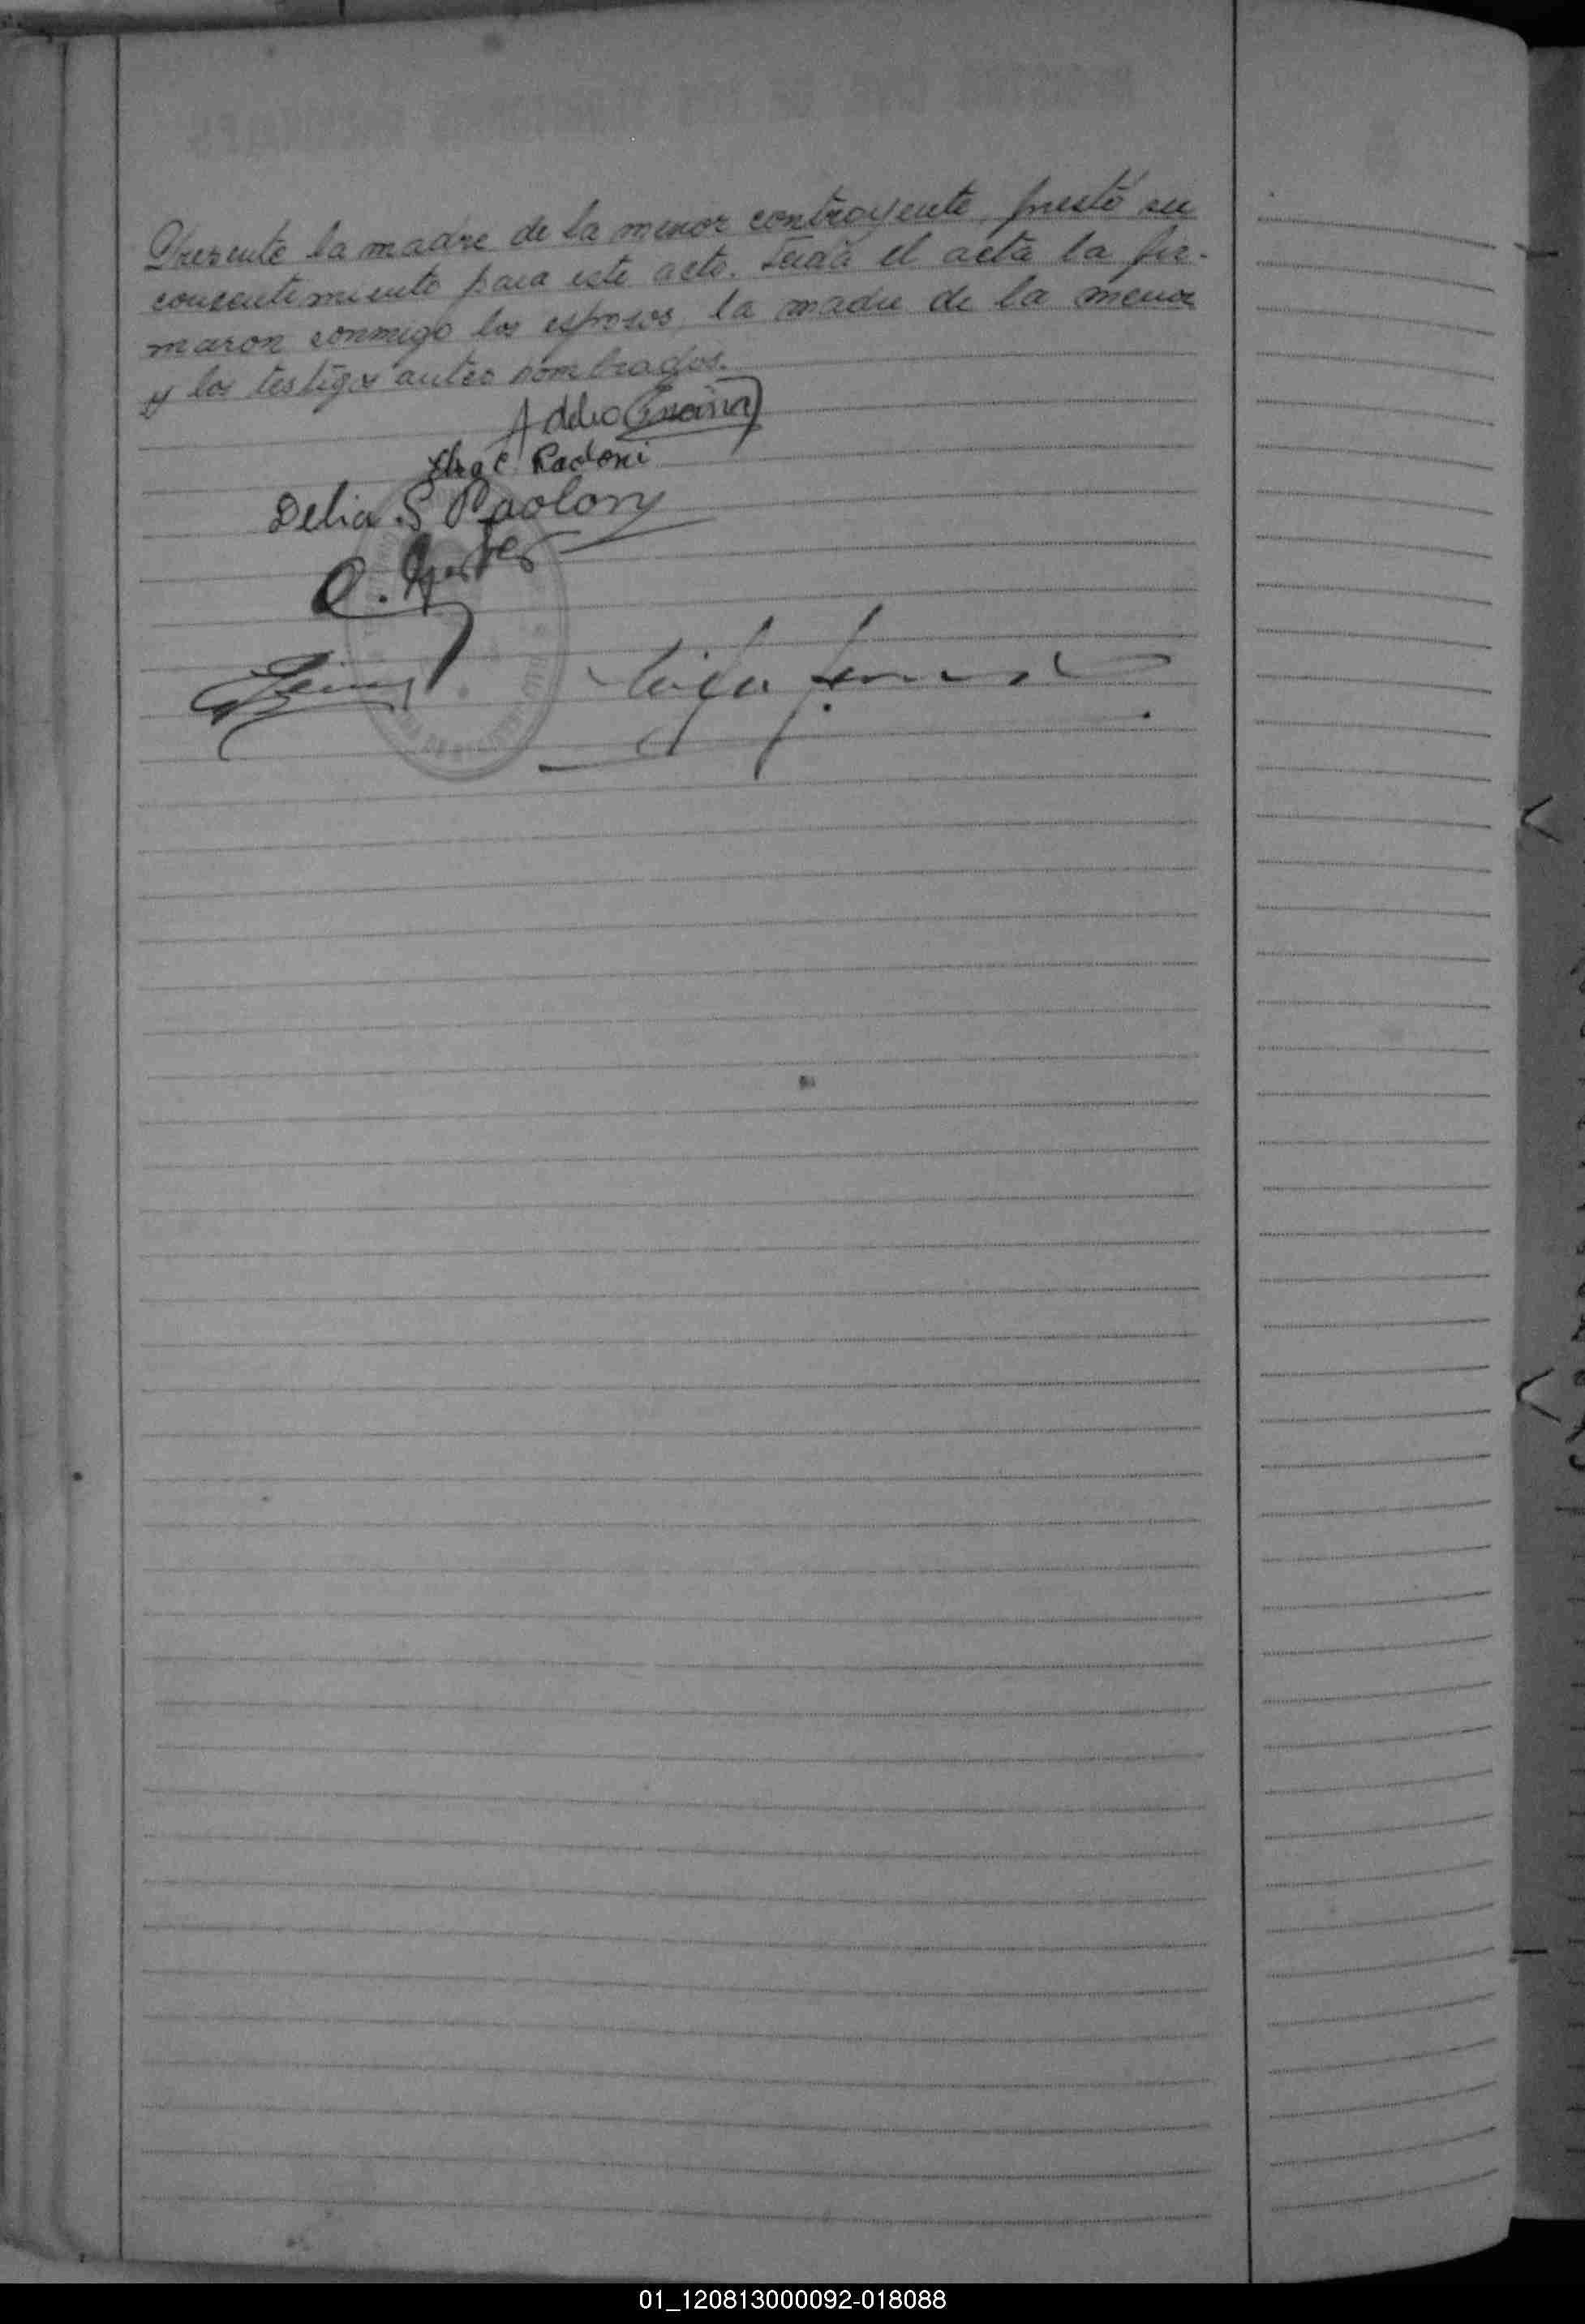 Presente la madre de la menor contrayente, prestó su
consentimiento para este acto. Leída el acta la fir-
maron conmigo los esposos, la madre de la menor
y los testigos antes nombrados.
Adelio
Paoloni
Delia S Paolony
01_120813000092-018088